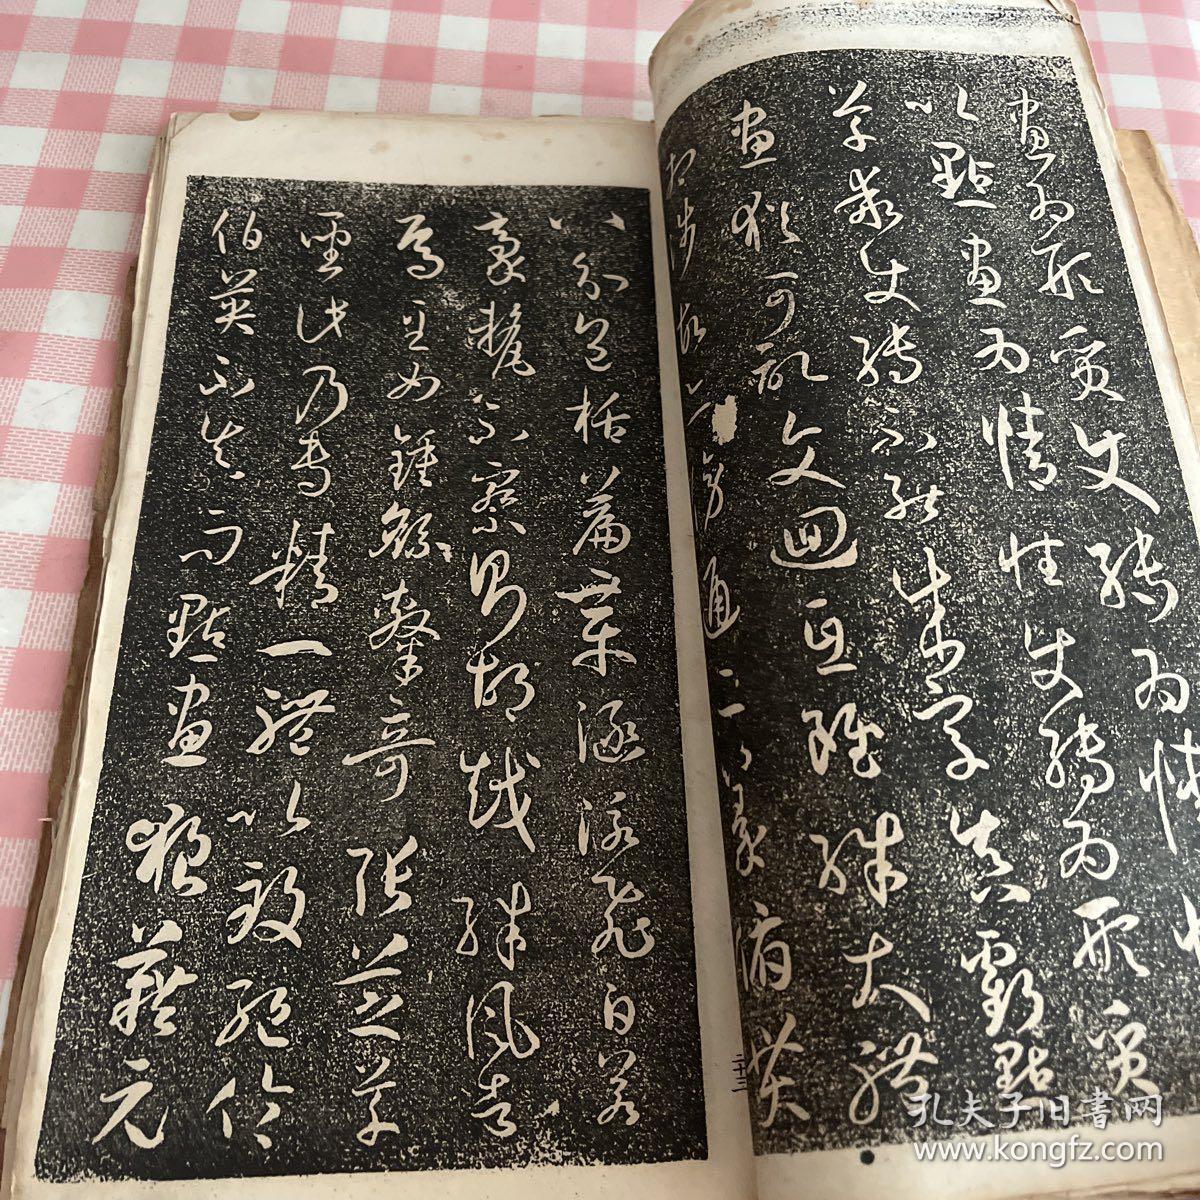 畫為形質使轉為情性
以點畫為情性使轉為形質
草乖使轉不能成字真虧點
畫猶可記文迴互雖殊大體
相涉故亦傍通二篆俯貫
二十三
八分包括篇章涵泳飛白若
豪釐不察則胡越殊風者
焉至如鍾繇隸奇張芝草
聖此乃專精一體以致絕倫
伯英不真而點畫狼藉元
孔夫子旧书网
www.kongfz.com